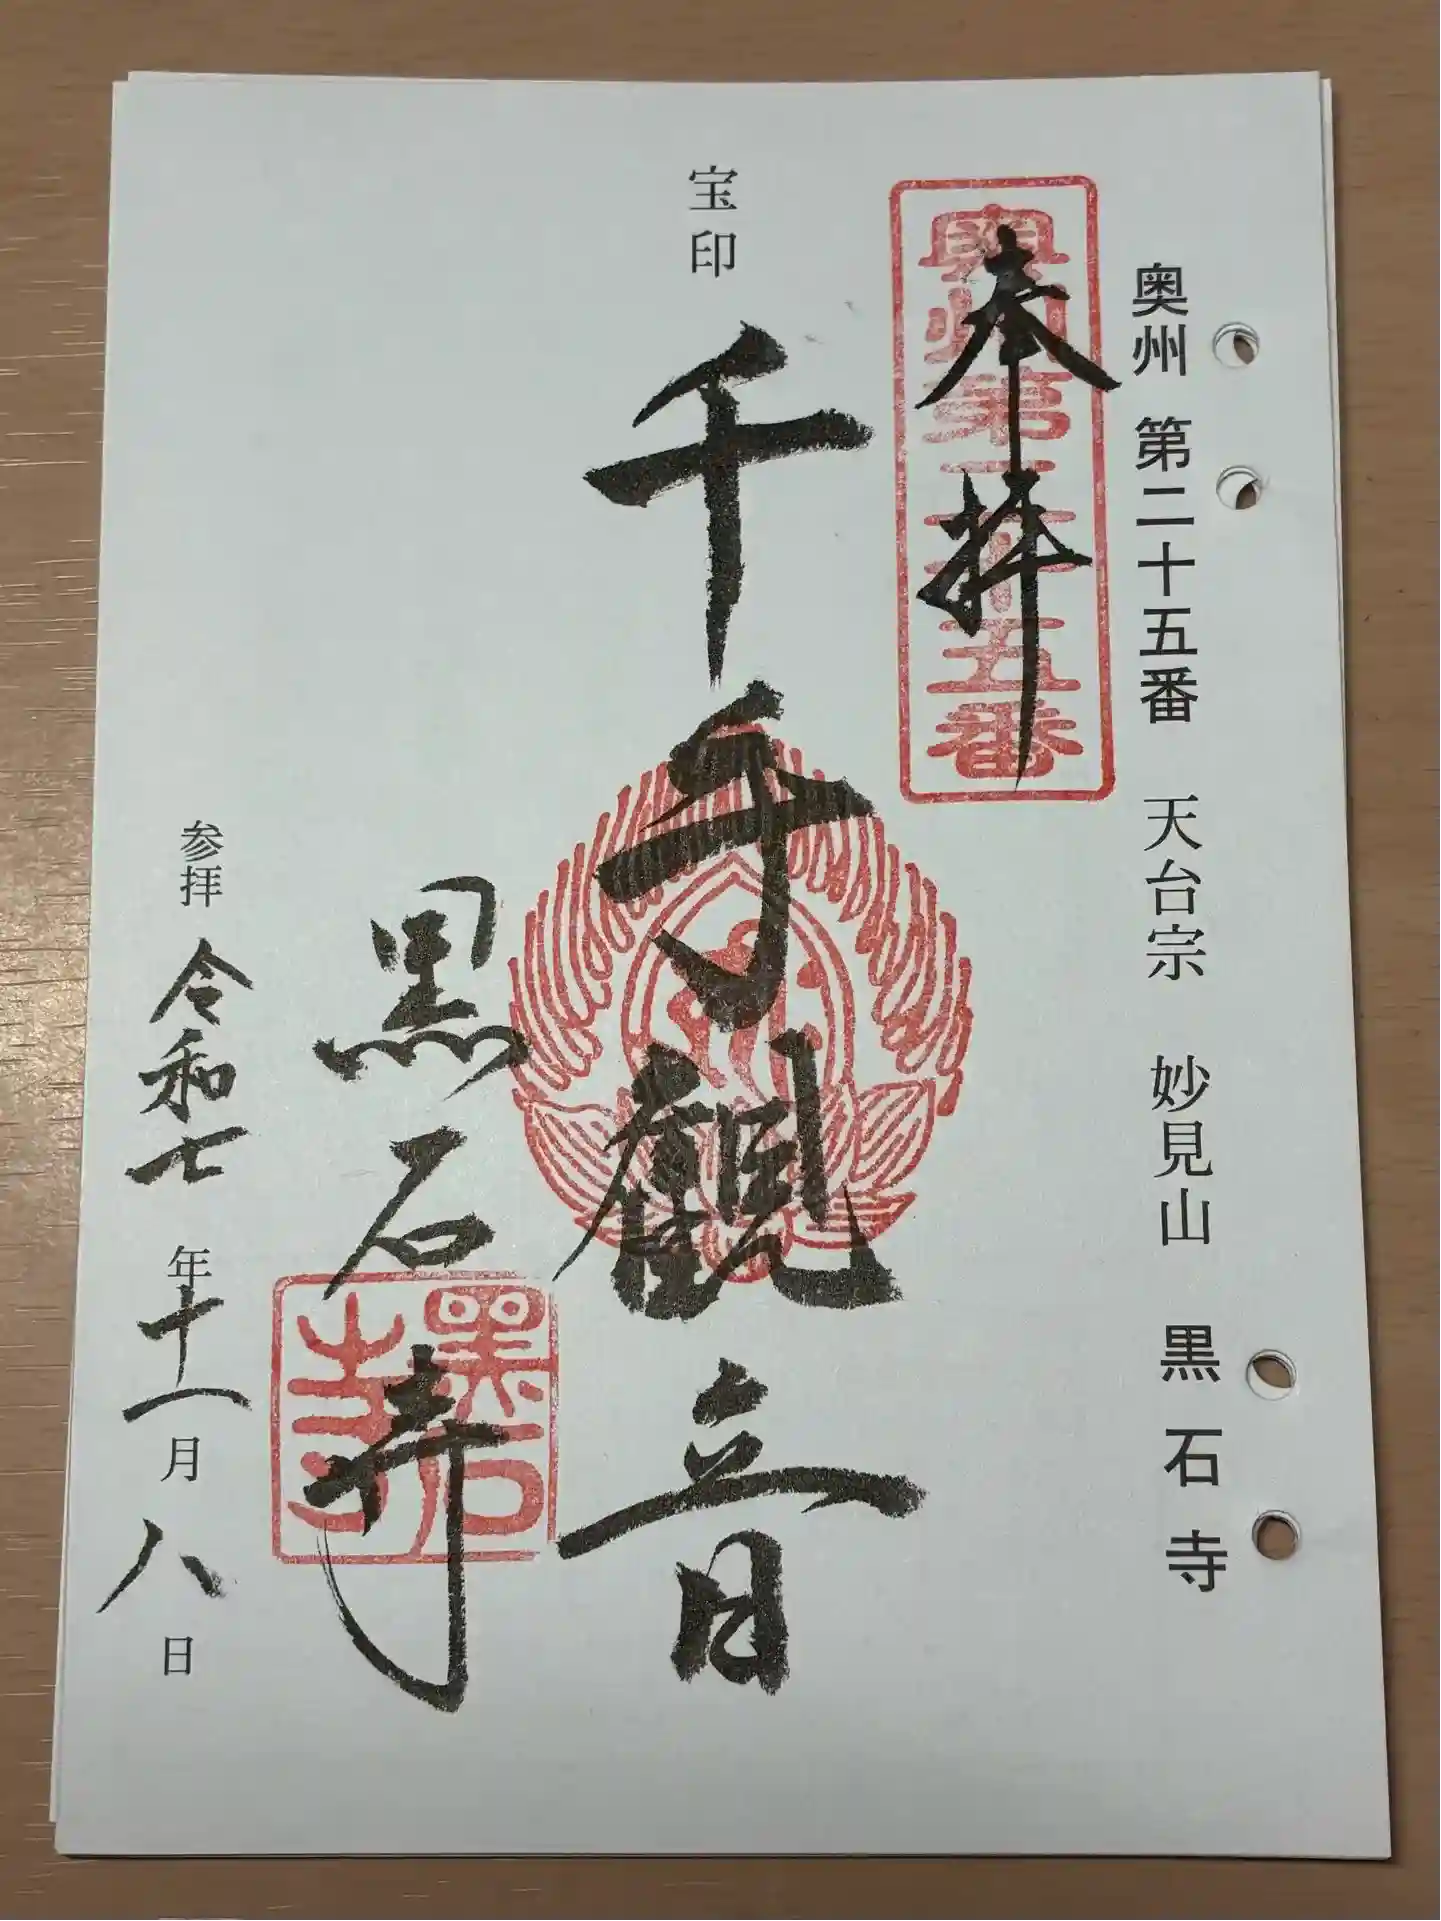 奥州 第二十五番 天台宗 妙見山 黒石寺
奥州第二十五番
奉拝
宝印
千手觀音
黒石寺
黑石寺
参拝 令和七年十一月八日